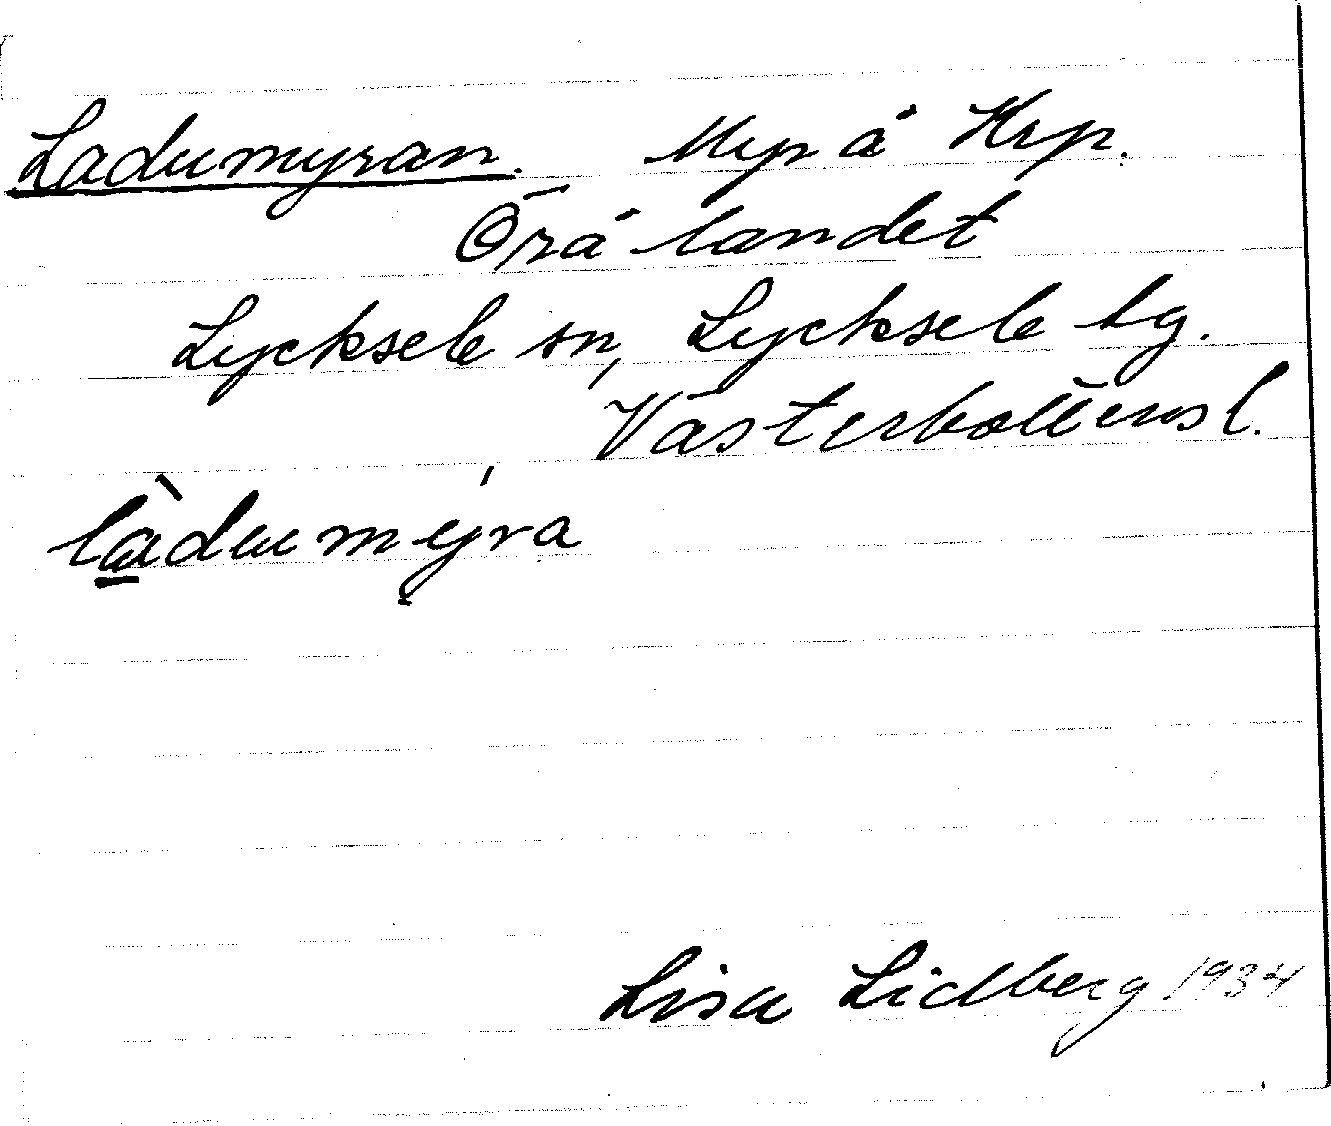 Ladumyran. Myr å Krp.
Örålandet
Lycksele sn, Lycksele lg.
Västerbottensl.
làdumýra
Lisa Lidberg 1934